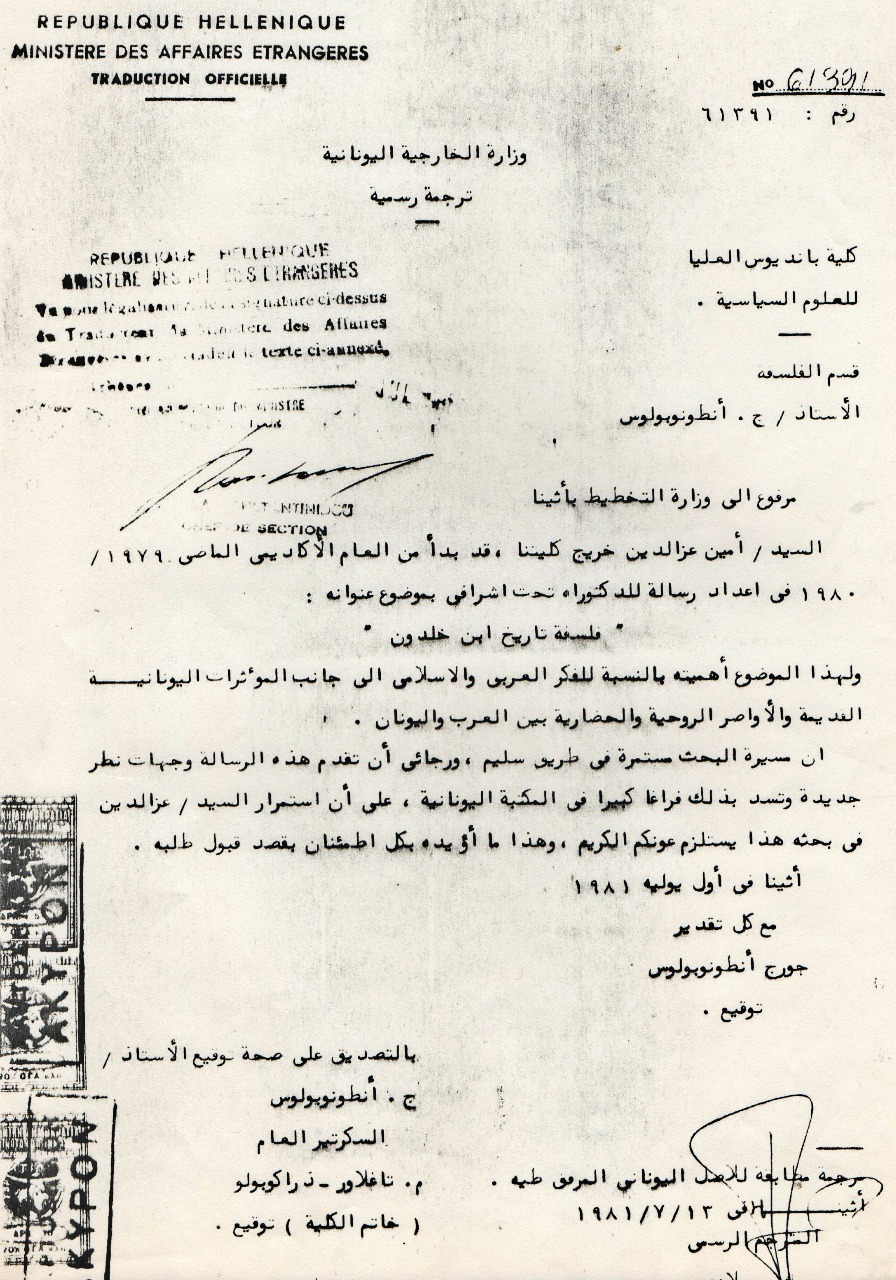 REPUBLIQUE HELLENIQUE
MINISTERE DES AFFAIRES ETRANGERES
TRADUCTION OFFICIELLE
No 61391
رقم : ٦١٣٩١
وزارة الخارجية اليونانية
ترجمة رسمية
REPUBLIQUE HELLENIQUE
MINISTERE DES ETRANGERES
signature ci-dessus
du Traducteur du Ministère des Affaires
le texte ci-annexé.
كلية بانديوس العليا
للعلوم السياسية .
قسم الفلسفه
الأستاذ / ج . أنطونوبولوس
CHEF DE SECTION
مرفوع الى وزارة التخطيط بأثينا
السيد / أمين عزالدين خريج كليتنا ، قد بدأ من العام الأكاديمى الماضى ١٩٧٩ /
١٩٨٠ فى اعداد رسالة للدكتوراه تحت اشرافى بموضوع عنوانه :
" فلسفة تاريخ ابن خلدون "
ولهذا الموضوع أهميته بالنسبة للفكر العربى والاسلامى الى جانب الموءثرات اليونانيـــة
القديمة والأواصر الروحية والحضارية بين العرب واليونان .
ان مسيرة البحث مستمرة فى طريق سليم ، ورجائى أن تقدم هذه الرسالة وجهات نظر
جديدة وتسد بذلك فراغا كبيرا فى المكتبة اليونانية ، على أن استمرار السيد / عزالدين
فى بحثه هذا يستلزم عونكم الكريم ، وهذا ما أؤيده بكل اطمئنان بقصد قبول طلبه .
أثينا فى أول يوليه ١٩٨١
مع كل تقدير
جورج أنطونوبولوس
توقيع .
بالتصديق على صحة توقيع الأستاذ /
ج . أنطونوبولوس
السكرتير العام
م. تاغلاور - ذراكوبولو
( خاتم الكلية ) توقيع .
ترجمة مطابقة للاصل اليوناني المرفق طيه .
فى ١٩٨١/٧/١٣
المترجم الرسمى
AKYPON
AKYPON